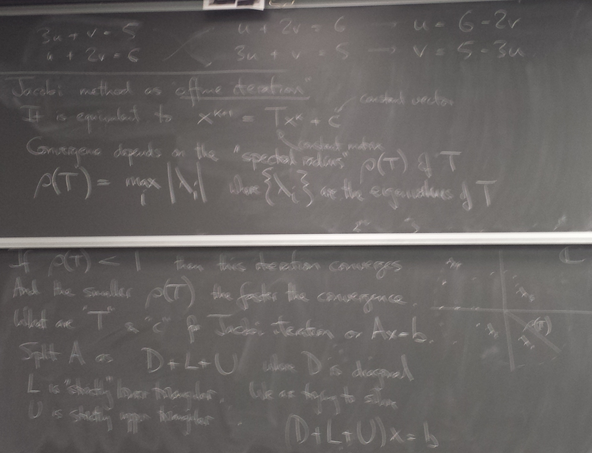 3u + v = 5 u + 2v = 6 → u = 6 - 2v
u + 2v = 6 3u + v = 5 → v = 5 - 3u
Jacobi method as "affine iteration"
It is equivalent to x^{k+1} = Tx^k + c constant vector
constant matrix
Convergence depends on the "spectral radius" ρ(T) of T
ρ(T) = max_i |λ_i| where {λ_i} are the eigenvalues of T
If ρ(T) < 1 then this iteration converges
And the smaller ρ(T) the faster the convergence.
What are "T" & "c" for Jacobi iteration on Ax=b.
Split A as D+L+U where D is diagonal
L is "strictly" lower triangular. We are trying to solve
U is strictly upper triangular.
(D+L+U)x = b